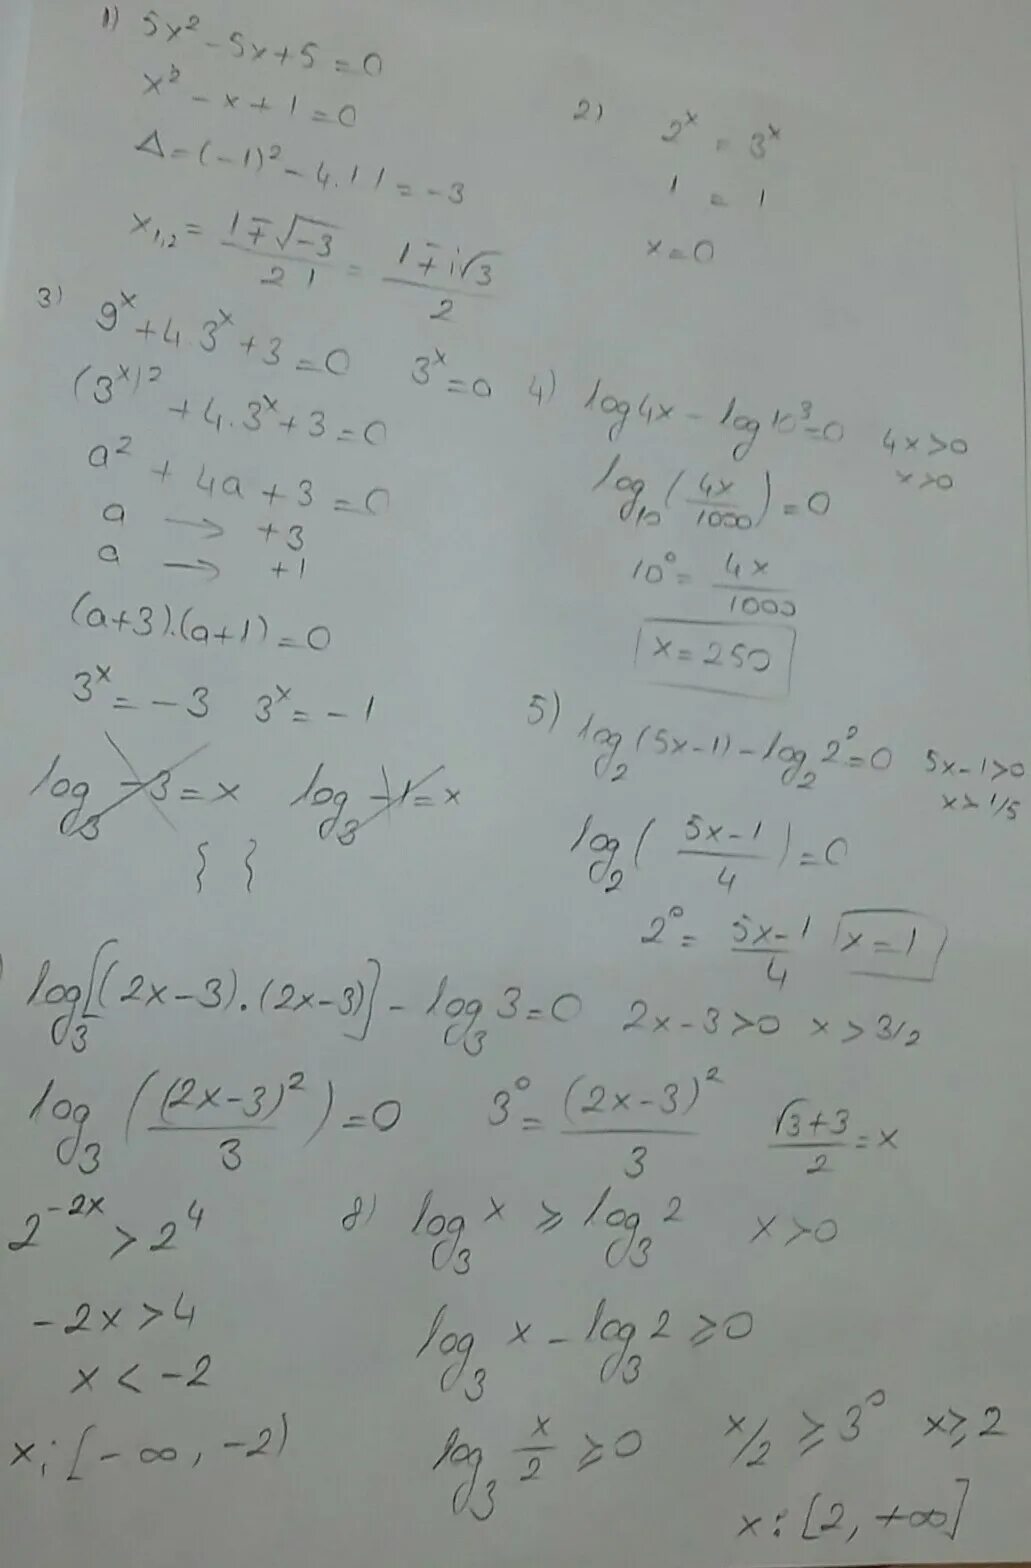 1) 5x² - 5x + 5 = 0
x² - x + 1 = 0
Δ = (-1)² - 4.1 1 = -3
x₁,₂ = (1 ∓ √-3)/(2 1) = (1 ∓ i√3)/2
2) 2ˣ = 3ˣ
1 = 1
x = 0
3) 9ˣ + 4.3ˣ + 3 = 0 3ˣ = a
(3ˣ)² + 4.3ˣ + 3 = 0
a² + 4a + 3 = 0
a → +3
a → +1
(a+3).(a+1) = 0
3ˣ = -3 3ˣ = -1
log₃ -3 = x log₃ -1 = x
{ }
4) log 4x - log 10³ = 0 4x > 0
x > 0
log₁₀ (4x/1000) = 0
10⁰ = 4x/1000
x = 250
5) log₂ (5x-1) - log₂ 2² = 0 5x-1 > 0
x > 1/5
log₂ ((5x-1)/4) = 0
2⁰ = (5x-1)/4 x = 1
) log₃ [(2x-3).(2x-3)] - log₃ 3 = 0 2x-3 > 0 x > 3/2
log₃ ((2x-3)²/3) = 0 3⁰ = (2x-3)²/3 (√3+3)/2 = x
2⁻²ˣ > 2⁴
-2x > 4
x < -2
x: [-∞, -2)
8) log₃ x ≥ log₃ 2 x > 0
log₃ x - log₃ 2 ≥ 0
log₃ x/2 ≥ 0 x/2 ≥ 3⁰ x ≥ 2
x: [2, +∞]